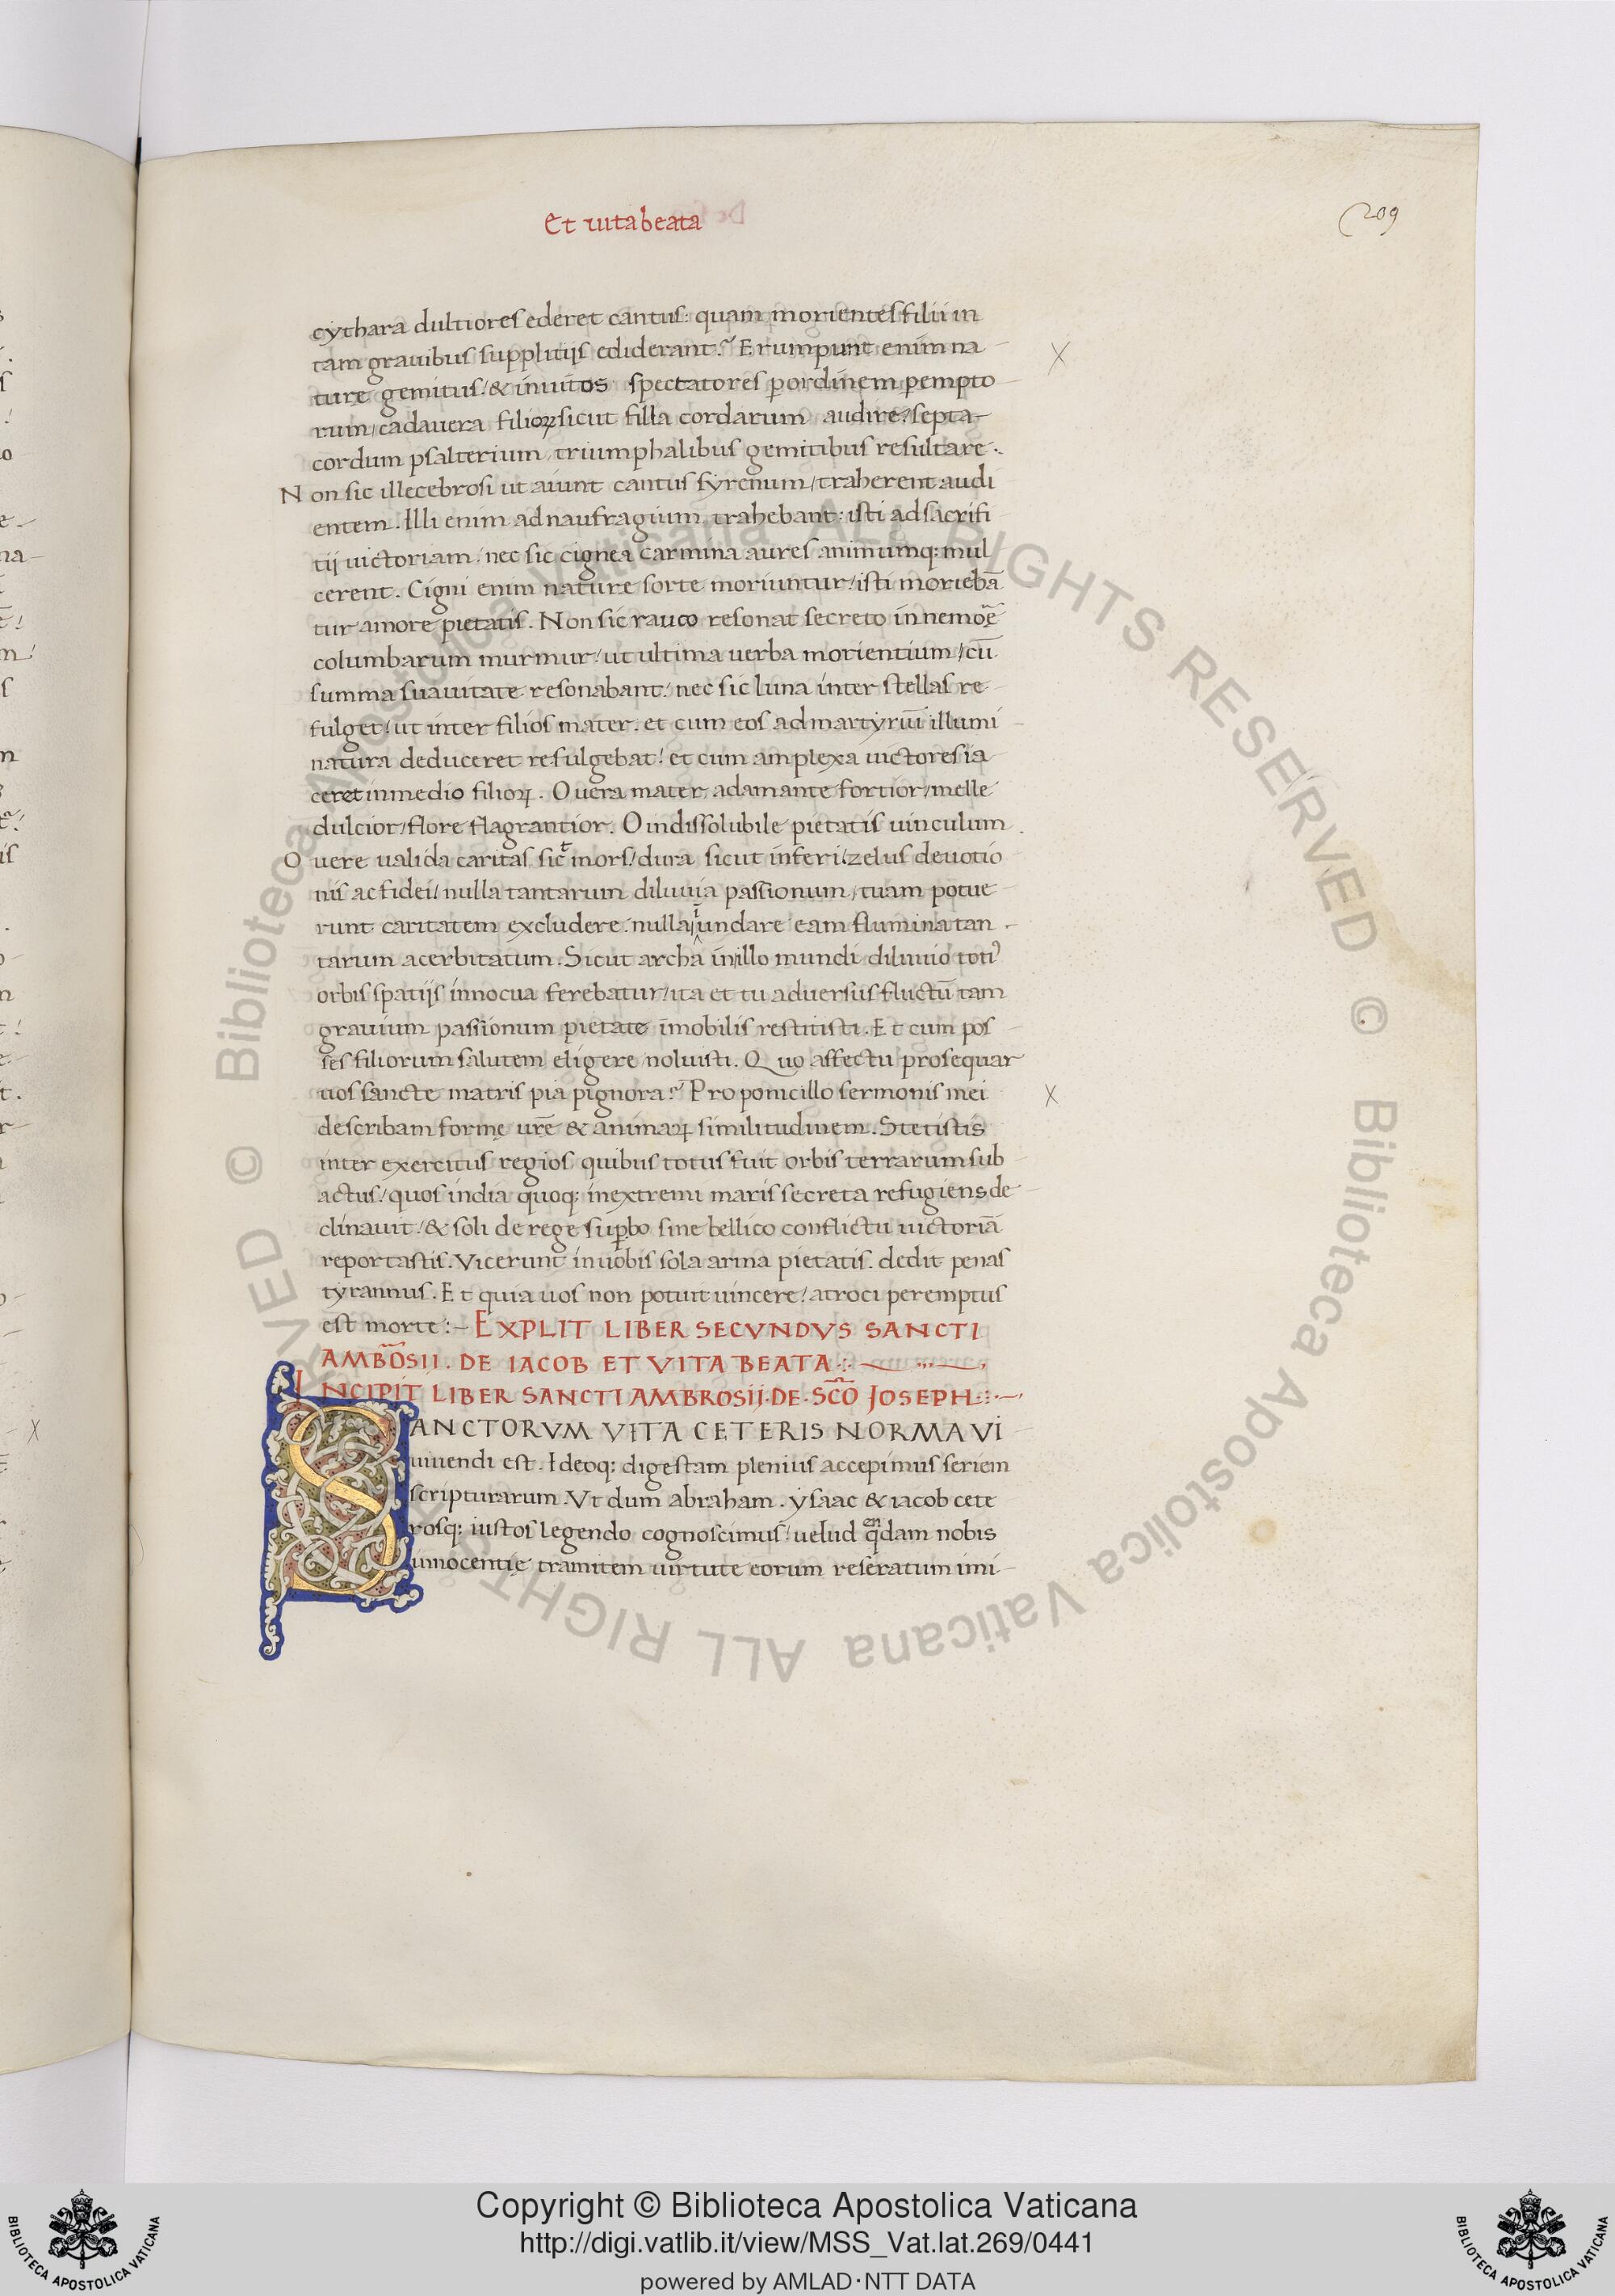 Et uita beata
209
cythara dultiores ederet cantus: quam morientes filii in
tam grauibus supplitijs ediderant? Erumpunt enim na
ture gemitus / & inuitos spectatores p ordinem pempto
rum / cadauera filioꝝ sicut filla cordarum audire / septa-
cordum psalterium / triumphalibus gemitibus resultare .
Non sic illecebrosi ut aiunt cantus syrenum / traherent audi
entem . Illi enim ad naufragium trahebant: isti ad sacrifi
tij uictoriam / nec sic cignea carmina aures animumq: mul
cerent. Cigni enim nature sorte moriuntur / isti moriebā
tur amore pietatis. Non sic rauco resonat secreto in nemoꝛe
columbarum murmur / ut ultima uerba morientium / cū
summa suauitate resonabant / nec sic luna inter stellas re
fulget / ut inter filios mater. et cum eos ad martyriū illumi
natura deduceret refulgebat / et cum amplexa uictores ia
ceret in medio filioꝝ. O uera mater adamante fortior / melle
dulcior / flore flagrantior. O indissolubile pietatis uinculum
O uere ualida caritas sicᵗ mors / dura sicut inferi / zelus deuotio
nis ac fidei / nulla tantarum diluuia passionum / tuam potue
runt caritatem excludere. nulla iundare eam flumina tan
tarum acerbitatum. Sicut archa in illo mundi diluuio toti᾽
orbis spatijs innocua ferebatur / ita et tu aduersus fluctū tam
grauium passionum pietate īmobilis restitisti. Et cum pos
ses filiorum salutem eligere noluisti. Quo affectu prosequar
uos sancte matris pia pignora? Pro ponicillo sermonis mei
describam formę urē & animaꝝ similitudinem. Stetistis
inter exercitus regios quibus totus fuit orbis terrarum sub
actus / quos india quoq: in extremi maris secreta refugiens de
clinauit / & soli de rege suꝑbo sine bellico conflictu uictoriā
reportastis. Vicerunt in uobis sola arma pietatis. dedit penas
tyrannus. Et quia uos non potuit uincere / atroci peremptus
est morte :- EXPLIT LIBER SECVNDVS SANCTI
AMBŌSII . DE IACOB ET VITA BEATA
INCIPIT LIBER SANCTI AMBROSIJ. DE. SC̄O JOSEPH
SANCTORVM VITA CETERIS NORMA VI
uiuendi est. Ideoq: digestam plenius accepimus seriem
scripturarum. Vt dum abraham. ysaac & iacob cete
rosq: iustos legendo cognoscimus / uelud qᵉⁿdam nobis
innocentię tramitem uirtute eorum reseratum imi-
© Biblioteca Apostolica Vaticana ALL RIGHTS RESERVED © Biblioteca Apostolica Vaticana ALL RIGHTS RESERVED
Copyright © Biblioteca Apostolica Vaticana
http://digi.vatlib.it/view/MSS_Vat.lat.269/0441
powered by AMLAD·NTT DATA
BIBLIOTECA APOSTOLICA VATICANA
BIBLIOTECA APOSTOLICA VATICANA